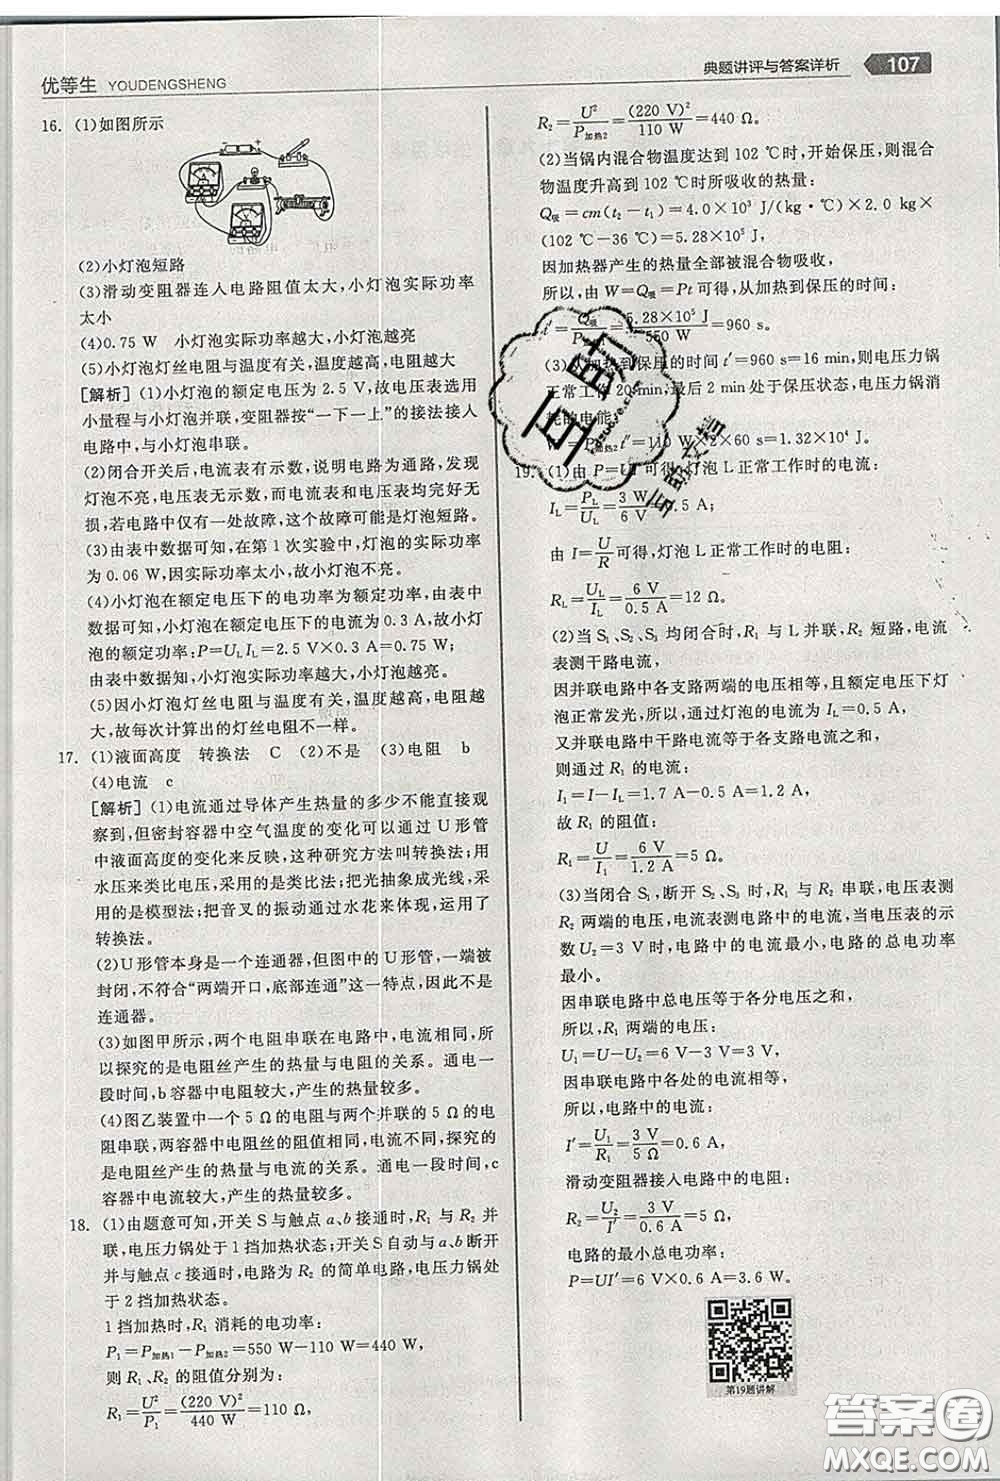 优等生 YOUDENGSHENG
典题讲评与答案详析 107
16. (1)如图所示
(2)小灯泡短路
(3)滑动变阻器连入电路阻值太大，小灯泡实际功率
太小
(4)0.75 W 小灯泡实际功率越大，小灯泡越亮
(5)小灯泡灯丝电阻与温度有关，温度越高，电阻越大
[解析] (1)小灯泡的额定电压为 2.5 V，故电压表选用
小量程与小灯泡并联，变阻器按“一下一上”的接法接入
电路中，与小灯泡串联。
(2)闭合开关后，电流表有示数，说明电路为通路，发现
灯泡不亮，电压表无示数，而电流表和电压表均完好无
损，若电路中仅有一处故障，这个故障可能是灯泡短路。
(3)由表中数据可知，在第 1 次实验中，灯泡的实际功率
为 0.06 W，因实际功率太小，故小灯泡不亮。
(4)小灯泡在额定电压下的电功率为额定功率，由表中
数据可知，小灯泡在额定电压下的电流为0.3 A，故小灯
泡的额定功率：P=U_L I_L=2.5 V×0.3 A=0.75 W。
由表中数据知，小灯泡实际功率越大，小灯泡越亮。
(5)因小灯泡灯丝电阻与温度有关，温度越高，电阻越
大，故每次计算出的灯丝电阻不一样。
17. (1)液面高度 转换法 C (2)不是 (3)电阻 b
(4)电流 c
[解析] (1)电流通过导体产生热量的多少不能直接观
察到，但密封容器中空气温度的变化可以通过 U 形管
中液面高度的变化来反映，这种研究方法叫转换法；用
水压来类比电压，采用的是类比法；把光抽象成光线，采
用的是模型法；把音叉的振动通过水花来体现，运用了
转换法。
(2)U形管本身是一个连通器，但图中的U形管，一端被
封闭，不符合“两端开口，底部连通”这一特点，因此不是
连通器。
(3)如图甲所示，两个电阻丝串联在电路中，电流相同，所
以探究的是电阻丝产生的热量与电阻的关系。通电一
段时间，b容器中电阻较大，产生的热量较多。
(4)图乙装置中一个 5 Ω的电阻与两个并联的 5 Ω的电
阻串联，两容器中电阻丝的阻值相同，电流不同，探究的
是电阻丝产生的热量与电流的关系。通电一段时间，c
容器中电流较大，产生的热量较多。
18. (1)由题意可知，开关 S 与触点 a、b 接通时，R₁ 与 R₂ 并
联，电压力锅处于1挡加热状态；开关 S自动与 a、b断开
并与触点 c 接通时，电路为 R₂ 的简单电路，电压力锅处
于 2 挡加热状态。
1 挡加热时，R₁ 消耗的电功率：
P₁=P加热1−P加热2=550 W−110 W=440 W，
则 R₁、R₂ 的阻值分别为：
R₁=U²/P₁=(220 V)²/440 W=110 Ω，
R₂=U²/P加热2=(220 V)²/110 W=440 Ω。
(2)当锅内混合物温度达到 102 ℃时，开始保压，则混合
物温度升高到 102 ℃时所吸收的热量：
Q吸=cm(t₂−t₁)=4.0×10³ J/(kg·℃)×2.0 kg×
(102 ℃−36 ℃)=5.28×10⁵ J，
因加热器产生的热量全部被混合物吸收，
所以，由 W=Q吸=Pt 可得，从加热到保压的时间：
t=Q吸/P=5.28×10⁵ J/550 W=960 s。
(3)加热到保压的时间 t′=960 s=16 min，则电压力锅
正常工作20 min，最后 2 min 处于保压状态，电压力锅消
耗的电能：
W=P加热2 t″=110 W×2×60 s=1.32×10⁴ J。
19. (1)由 P=UI 可得，灯泡 L 正常工作时的电流：
I_L=P_L/U_L=3 W/6 V=0.5 A；
由 I=U/R可得，灯泡 L 正常工作时的电阻：
R_L=U_L/I_L=6 V/0.5 A=12 Ω。
(2)当 S₁、S₂、S₃ 均闭合时，R₁与 L 并联，R₂ 短路，电流
表测干路电流，
因并联电路中各支路两端的电压相等，且额定电压下灯
泡正常发光，所以，通过灯泡的电流为 I_L=0.5 A，
又并联电路中干路电流等于各支路电流之和，
则通过 R₁ 的电流：
I₁=I−I_L=1.7 A−0.5 A=1.2 A，
故 R₁ 的阻值：
R₁=U/I₁=6 V/1.2 A=5 Ω。
(3)当闭合 S₁，断开 S₂、S₃ 时，R₁ 与 R₂ 串联，电压表测
R₂ 两端的电压，电流表测电路中的电流，当电压表的示
数 U₂=3 V 时，电路中的电流最小，电路的总电功率
最小。
因串联电路中总电压等于各分电压之和，
所以，R₁ 两端的电压：
U₁=U−U₂=6 V−3 V=3 V，
因串联电路中各处的电流相等，
所以，电路中的电流：
I′=U₁/R₁=3 V/5 Ω=0.6 A，
滑动变阻器接入电路中的电阻：
R₂=U₂/I′=3 V/0.6 A=5 Ω，
电路的最小总电功率：
P=UI′=6 V×0.6 A=3.6 W。
第19题讲解
互助
互助文档
答案圈
MXQE.COM